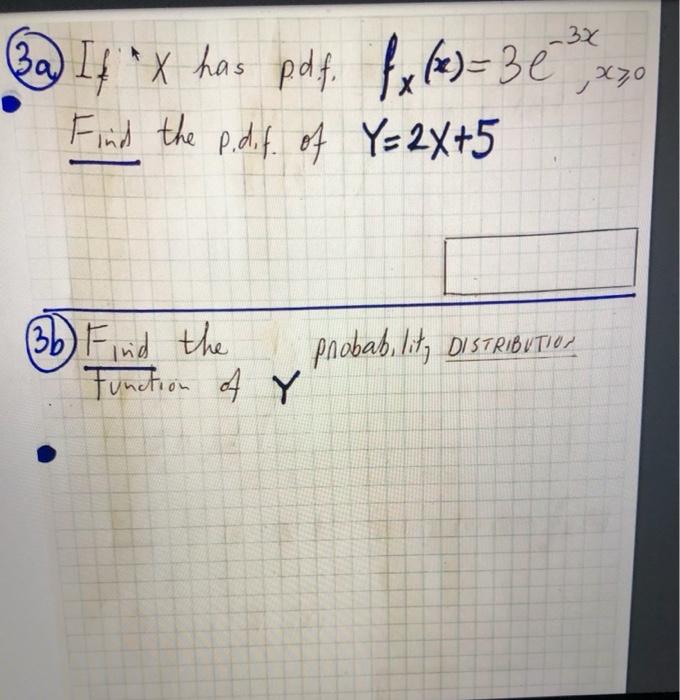 3a) If X has p.d.f. fₓ(x) = 3e^{-3x}, x≥0
Find the p.d.f. of Y=2X+5
3b) Find the probability DISTRIBUTION
Function of Y